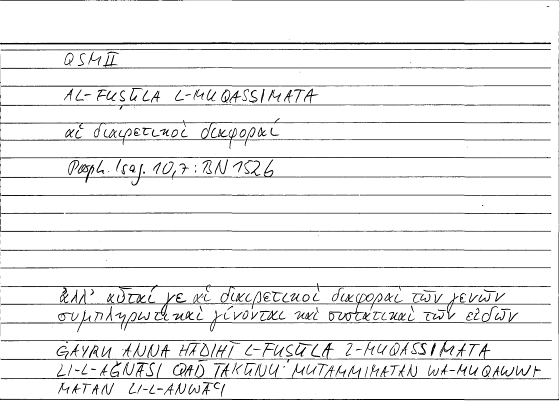 QSM II
AL-FUṢŪLA L-MUQASSIMATA
αἱ διαιρετικοὶ διαφοραί
Porph. Isag. 10,7: BN 152b
ἀλλ' αὗταί γε αἱ διαιρετικοὶ διαφοραὶ τῶν γενῶν
συμπληρωτικαὶ γίνονται καὶ συστατικαὶ τῶν εἰδῶν
ĠAYRU ANNA HĀḎIHĪ L-FUṢŪLA L-MUQASSIMATA
LI-L-AĞNĀSI QAD TAKŪNU MUTAMMIMATAN WA-MUQAWWI-
MATAN LI-L-ANWĀʿI